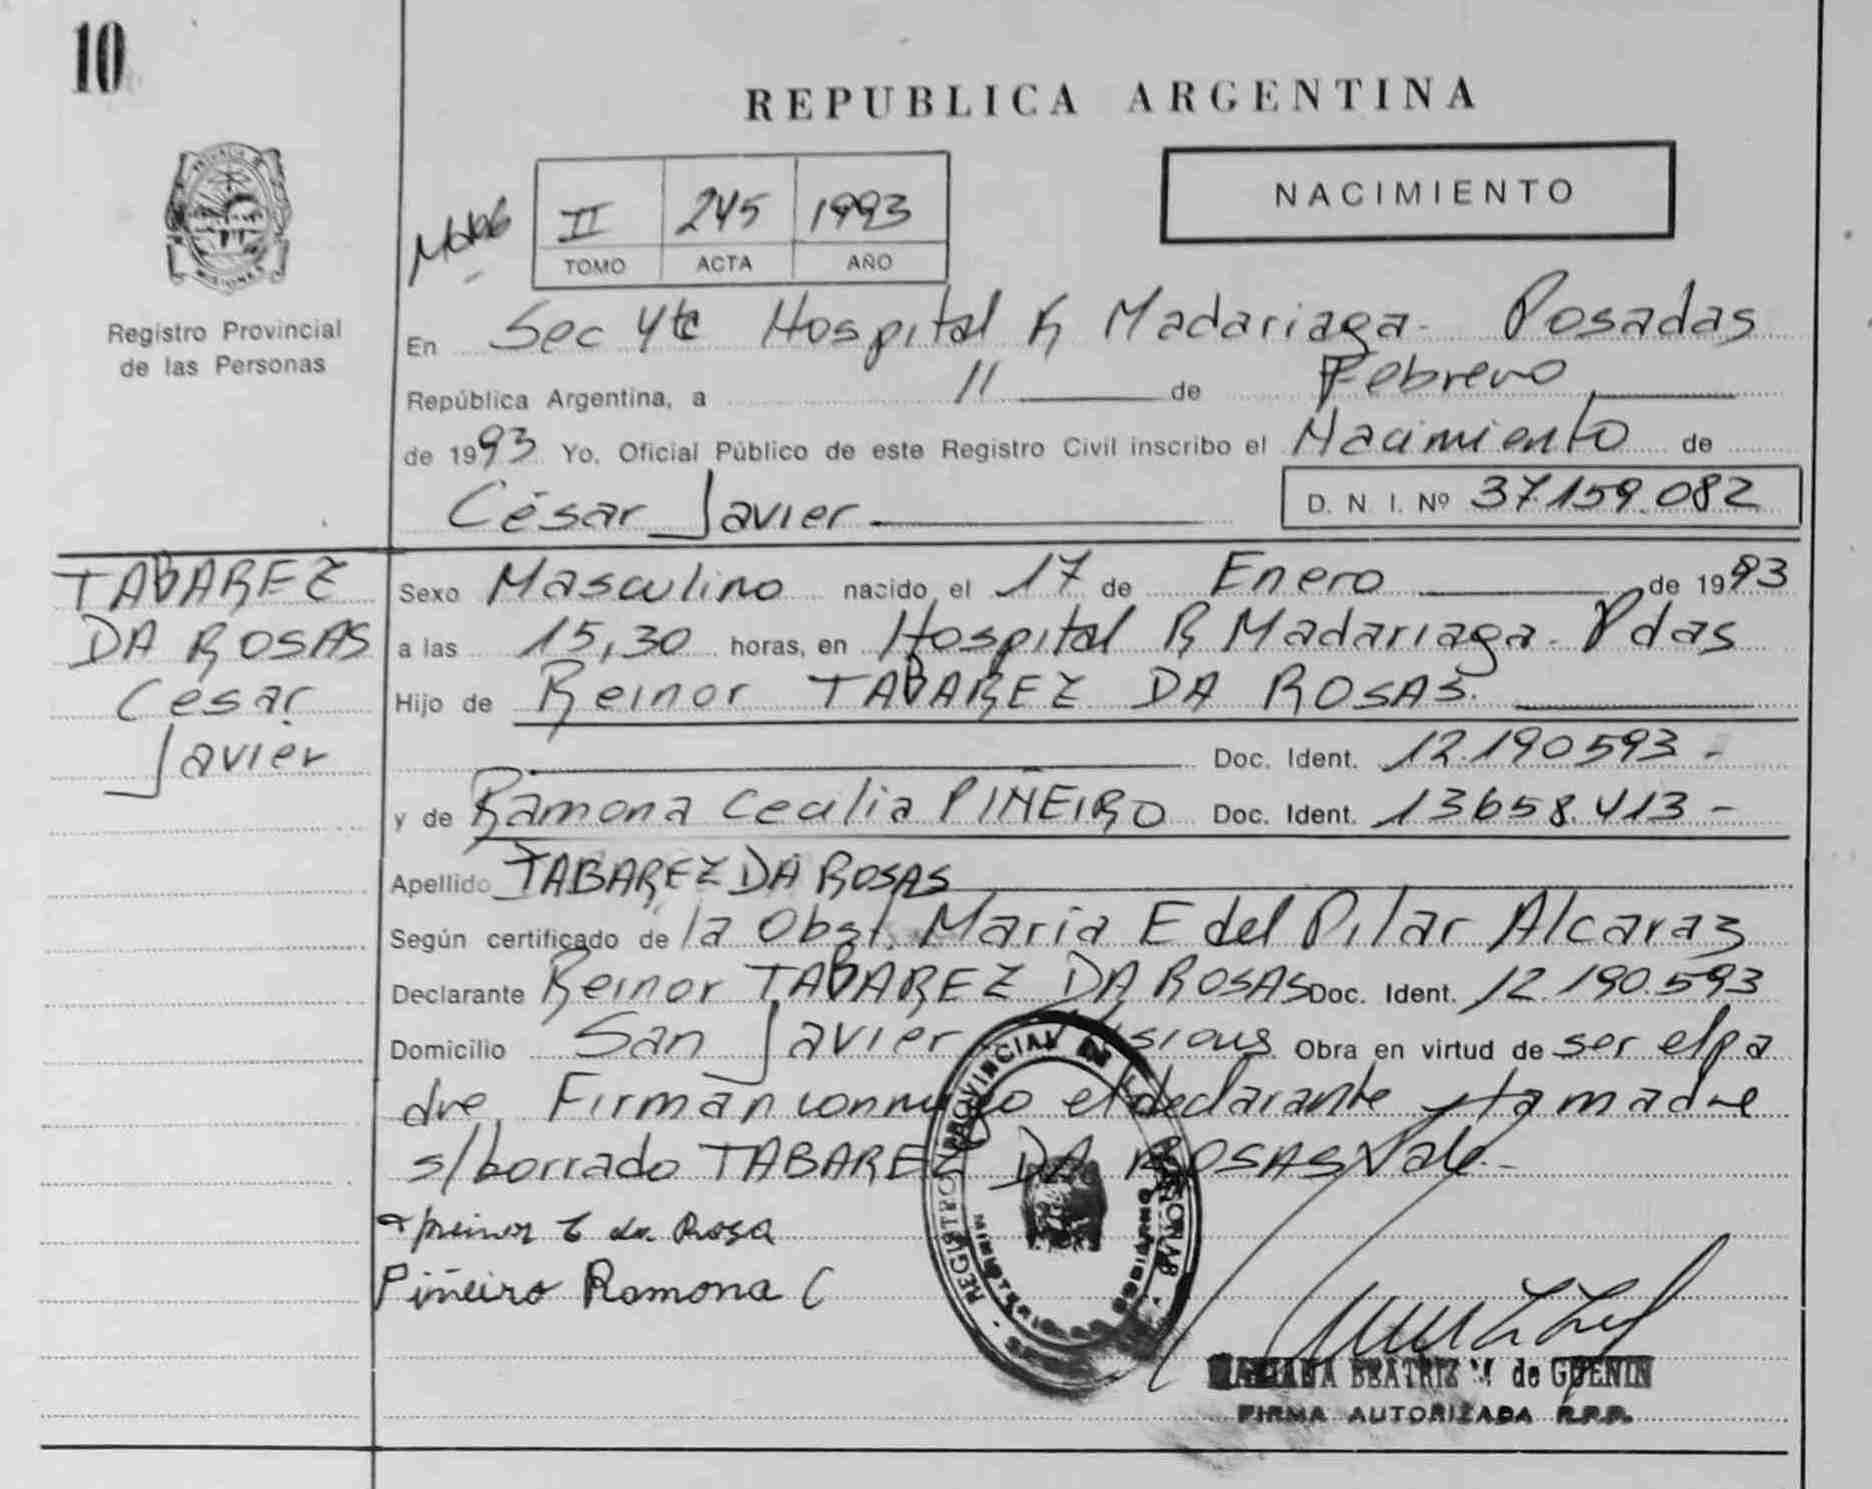 10
REPUBLICA ARGENTINA
NACIMIENTO
II 245 1993
TOMO ACTA AÑO
Registro Provincial
de las Personas
En Sec 4ta Hospital R Madariaga - Posadas
República Argentina, a 11 de Febrero
de 1993 Yo, Oficial Público de este Registro Civil inscribo el Nacimiento de
César Javier D. N. I. Nº 37.159.082
TABAREZ
DA ROSAS
César
Javier
Sexo Masculino nacido el 17 de Enero de 1993
a las 15,30 horas, en Hospital R Madariaga - Pdas
Hijo de Reinor TABAREZ DA ROSAS.
Doc. Ident. 12.190593 -
y de Ramona Cecilia PIÑEIRO Doc. Ident. 13658.413 -
Apellido TABAREZ DA ROSAS
Según certificado de la Obst. Maria E del Pilar Alcaraz
Declarante Reinor TABAREZ DA ROSAS Doc. Ident. 12.190.593
Domicilio San Javier Misiones Obra en virtud de ser el pa
dre. Firman conmigo el declarante y la madre
s/borrado TABAREZ DA ROSAS Vale.-
Reinor T da Rosa
Piñeiro Ramona C
REGISTRO PROVINCIAL DE LAS PERSONAS
MINISTERIO DE GOBIERNO
BEATRIZ M de GUENIN
FIRMA AUTORIZADA R.P.P.